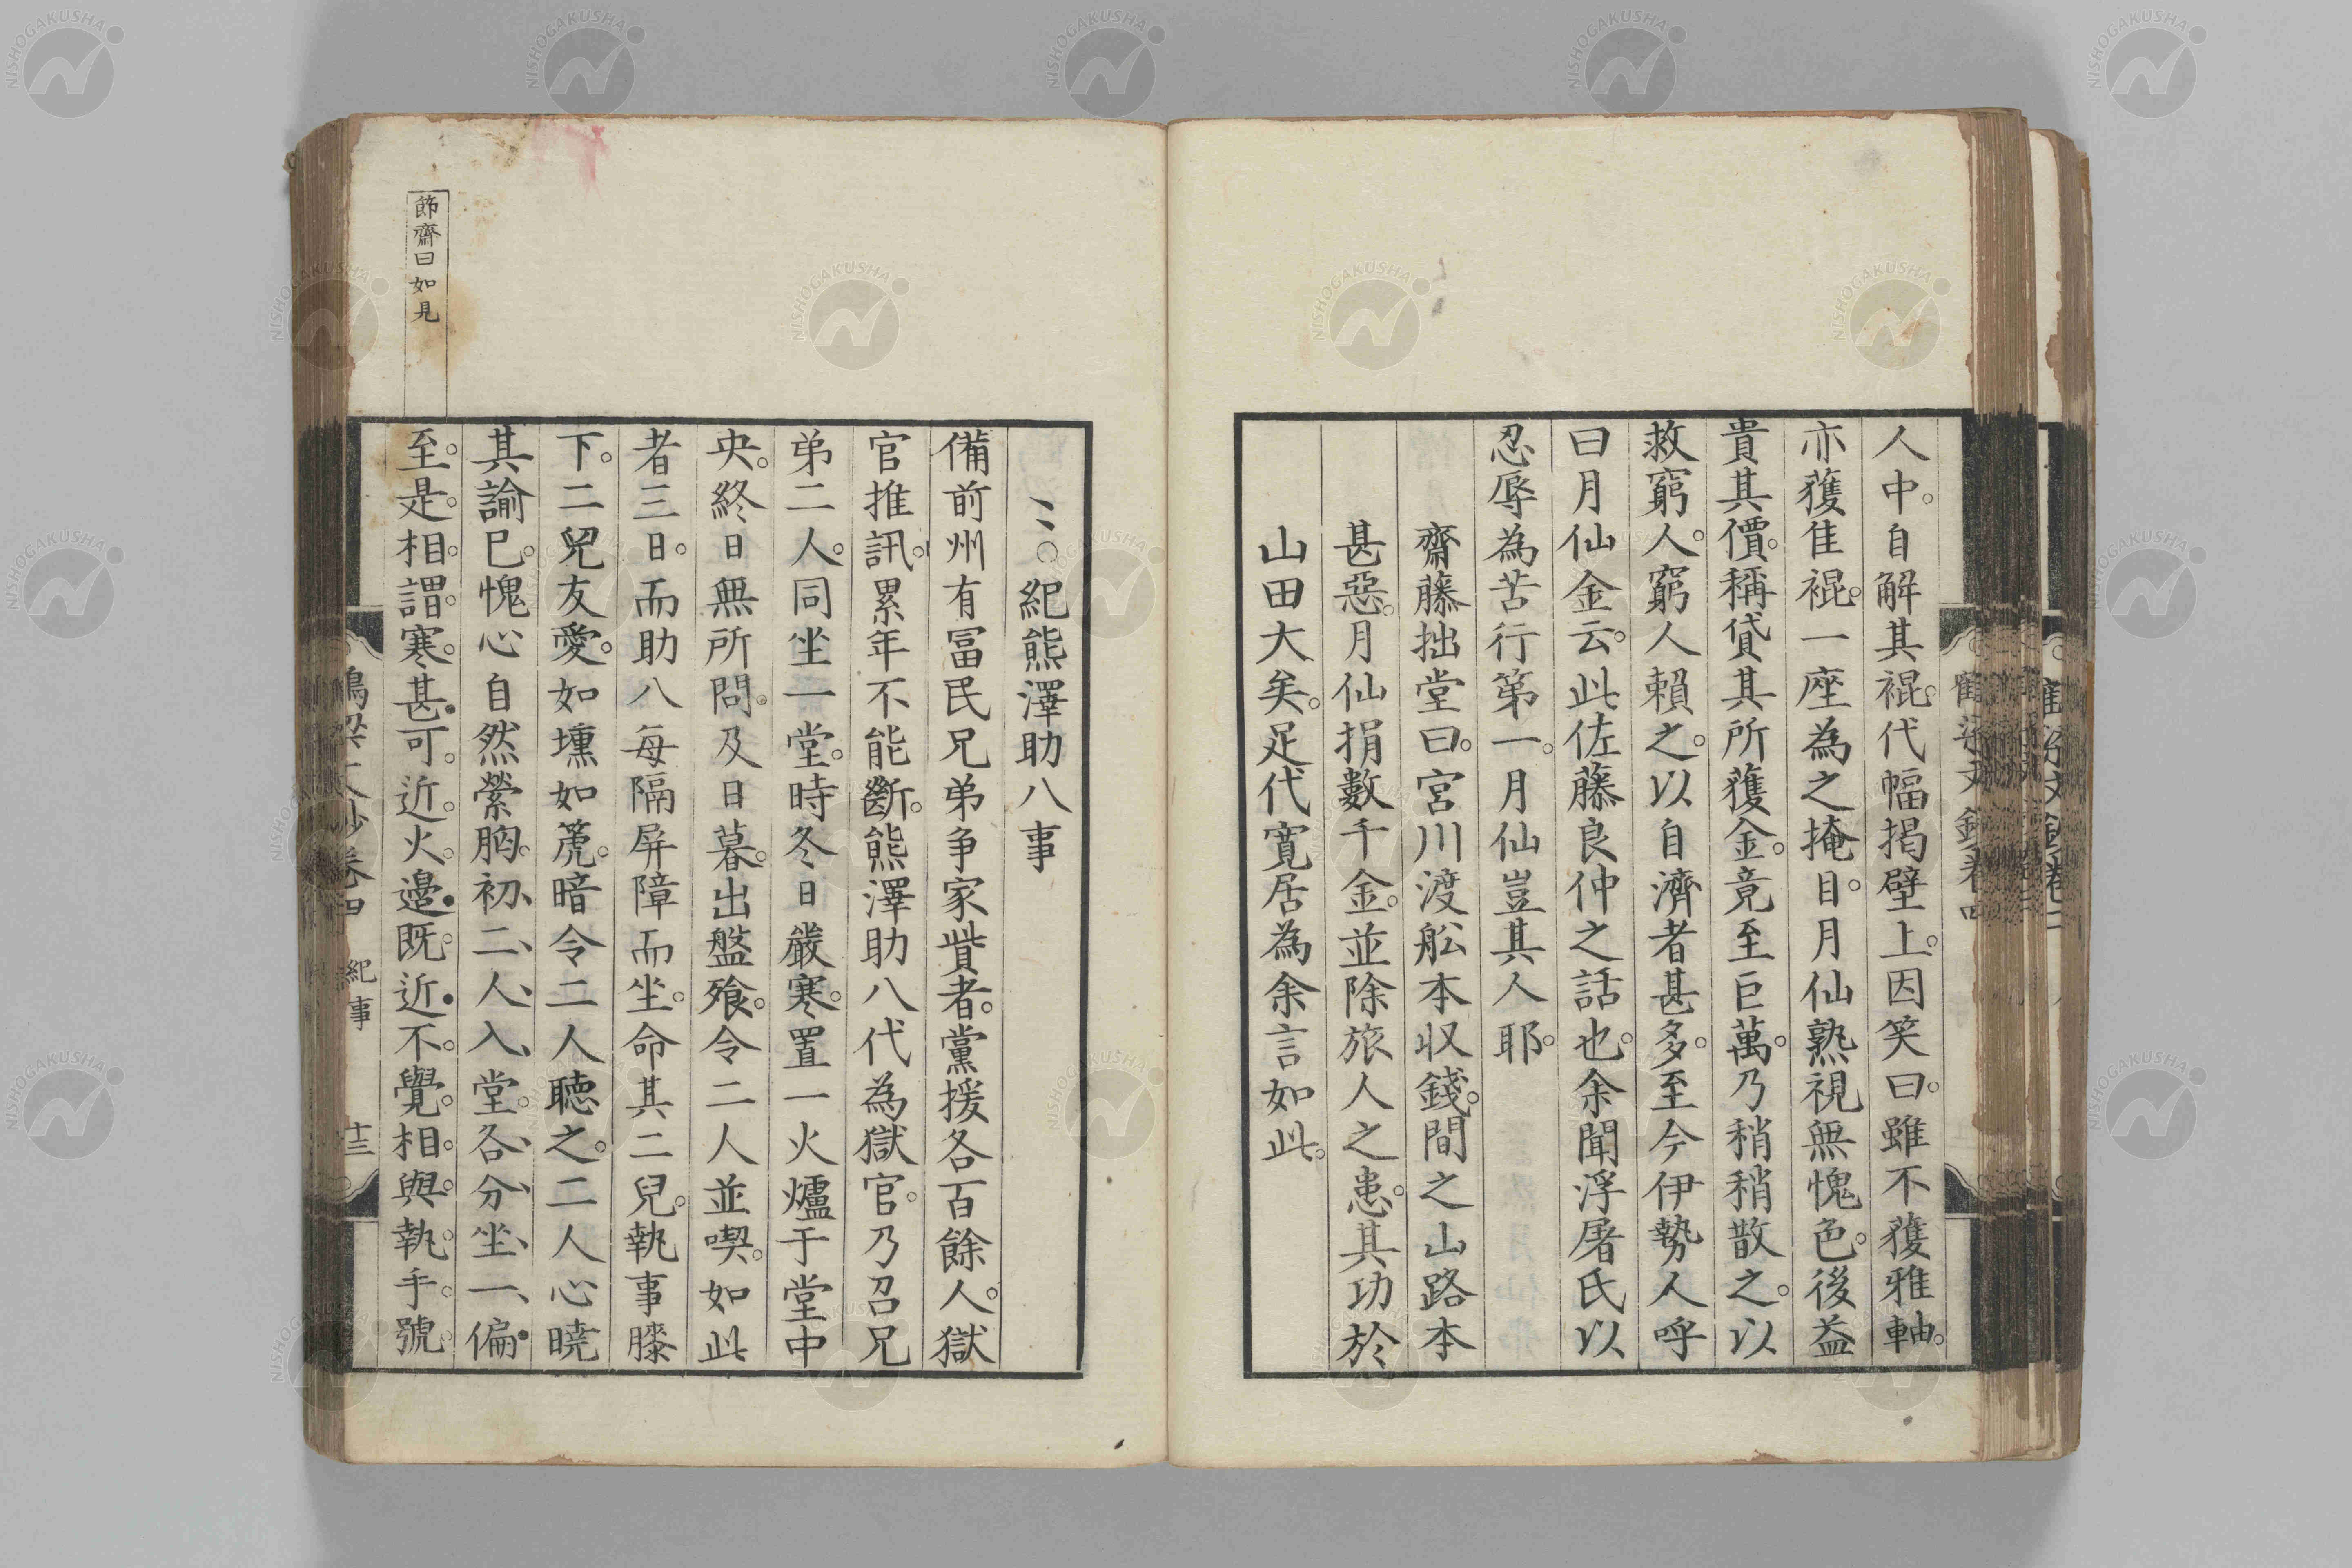 人中。自解其裩。代幅掲壁上。因笑曰。雖不獲雅軸。
亦獲隹裩。一座為之掩目。月仙熟視無愧色。後益
貴其價。稱貸其所獲金。竟至巨萬。乃稍稍散之。以
救窮人。窮人賴之。以自濟者甚多。至今伊勢人呼
曰月仙金云。此佐藤良仲之話也。余聞浮屠氏以
忍辱為苦行第一。月仙豈其人耶。
齋藤拙堂曰。宮川渡舩本収錢。間之山路本
甚惡。月仙捐數千金。並除旅人之患。其功於
山田大矣。足代寛居為余言如此。
〻〇紀熊澤助八事
備前州有冨民兄弟争家貲者。黨援各百餘人。獄
官推訊。累年不能斷。熊澤助八代為獄官。乃召兄
弟二人。同坐一堂。時冬日嚴寒。置一火爐于堂中
央。終日無所問。及日暮。出盤飱。令二人並喫。如此
者三日。而助八每隔屏障而坐。命其二兒。執事膝
下。二兒友愛。如壎如篪。暗令二人聴之。二人心暁
其諭已。愧心自然縈胸。初、二、人、入、堂。各、分、坐、一、偏
至。是。相。謂。寒。甚。可。近。火。邉。既。近。不。覺。相。與。執。手。號
節齋曰如見
鶴梁文鈔卷四
紀事
十三
NISHOGAKUSHA